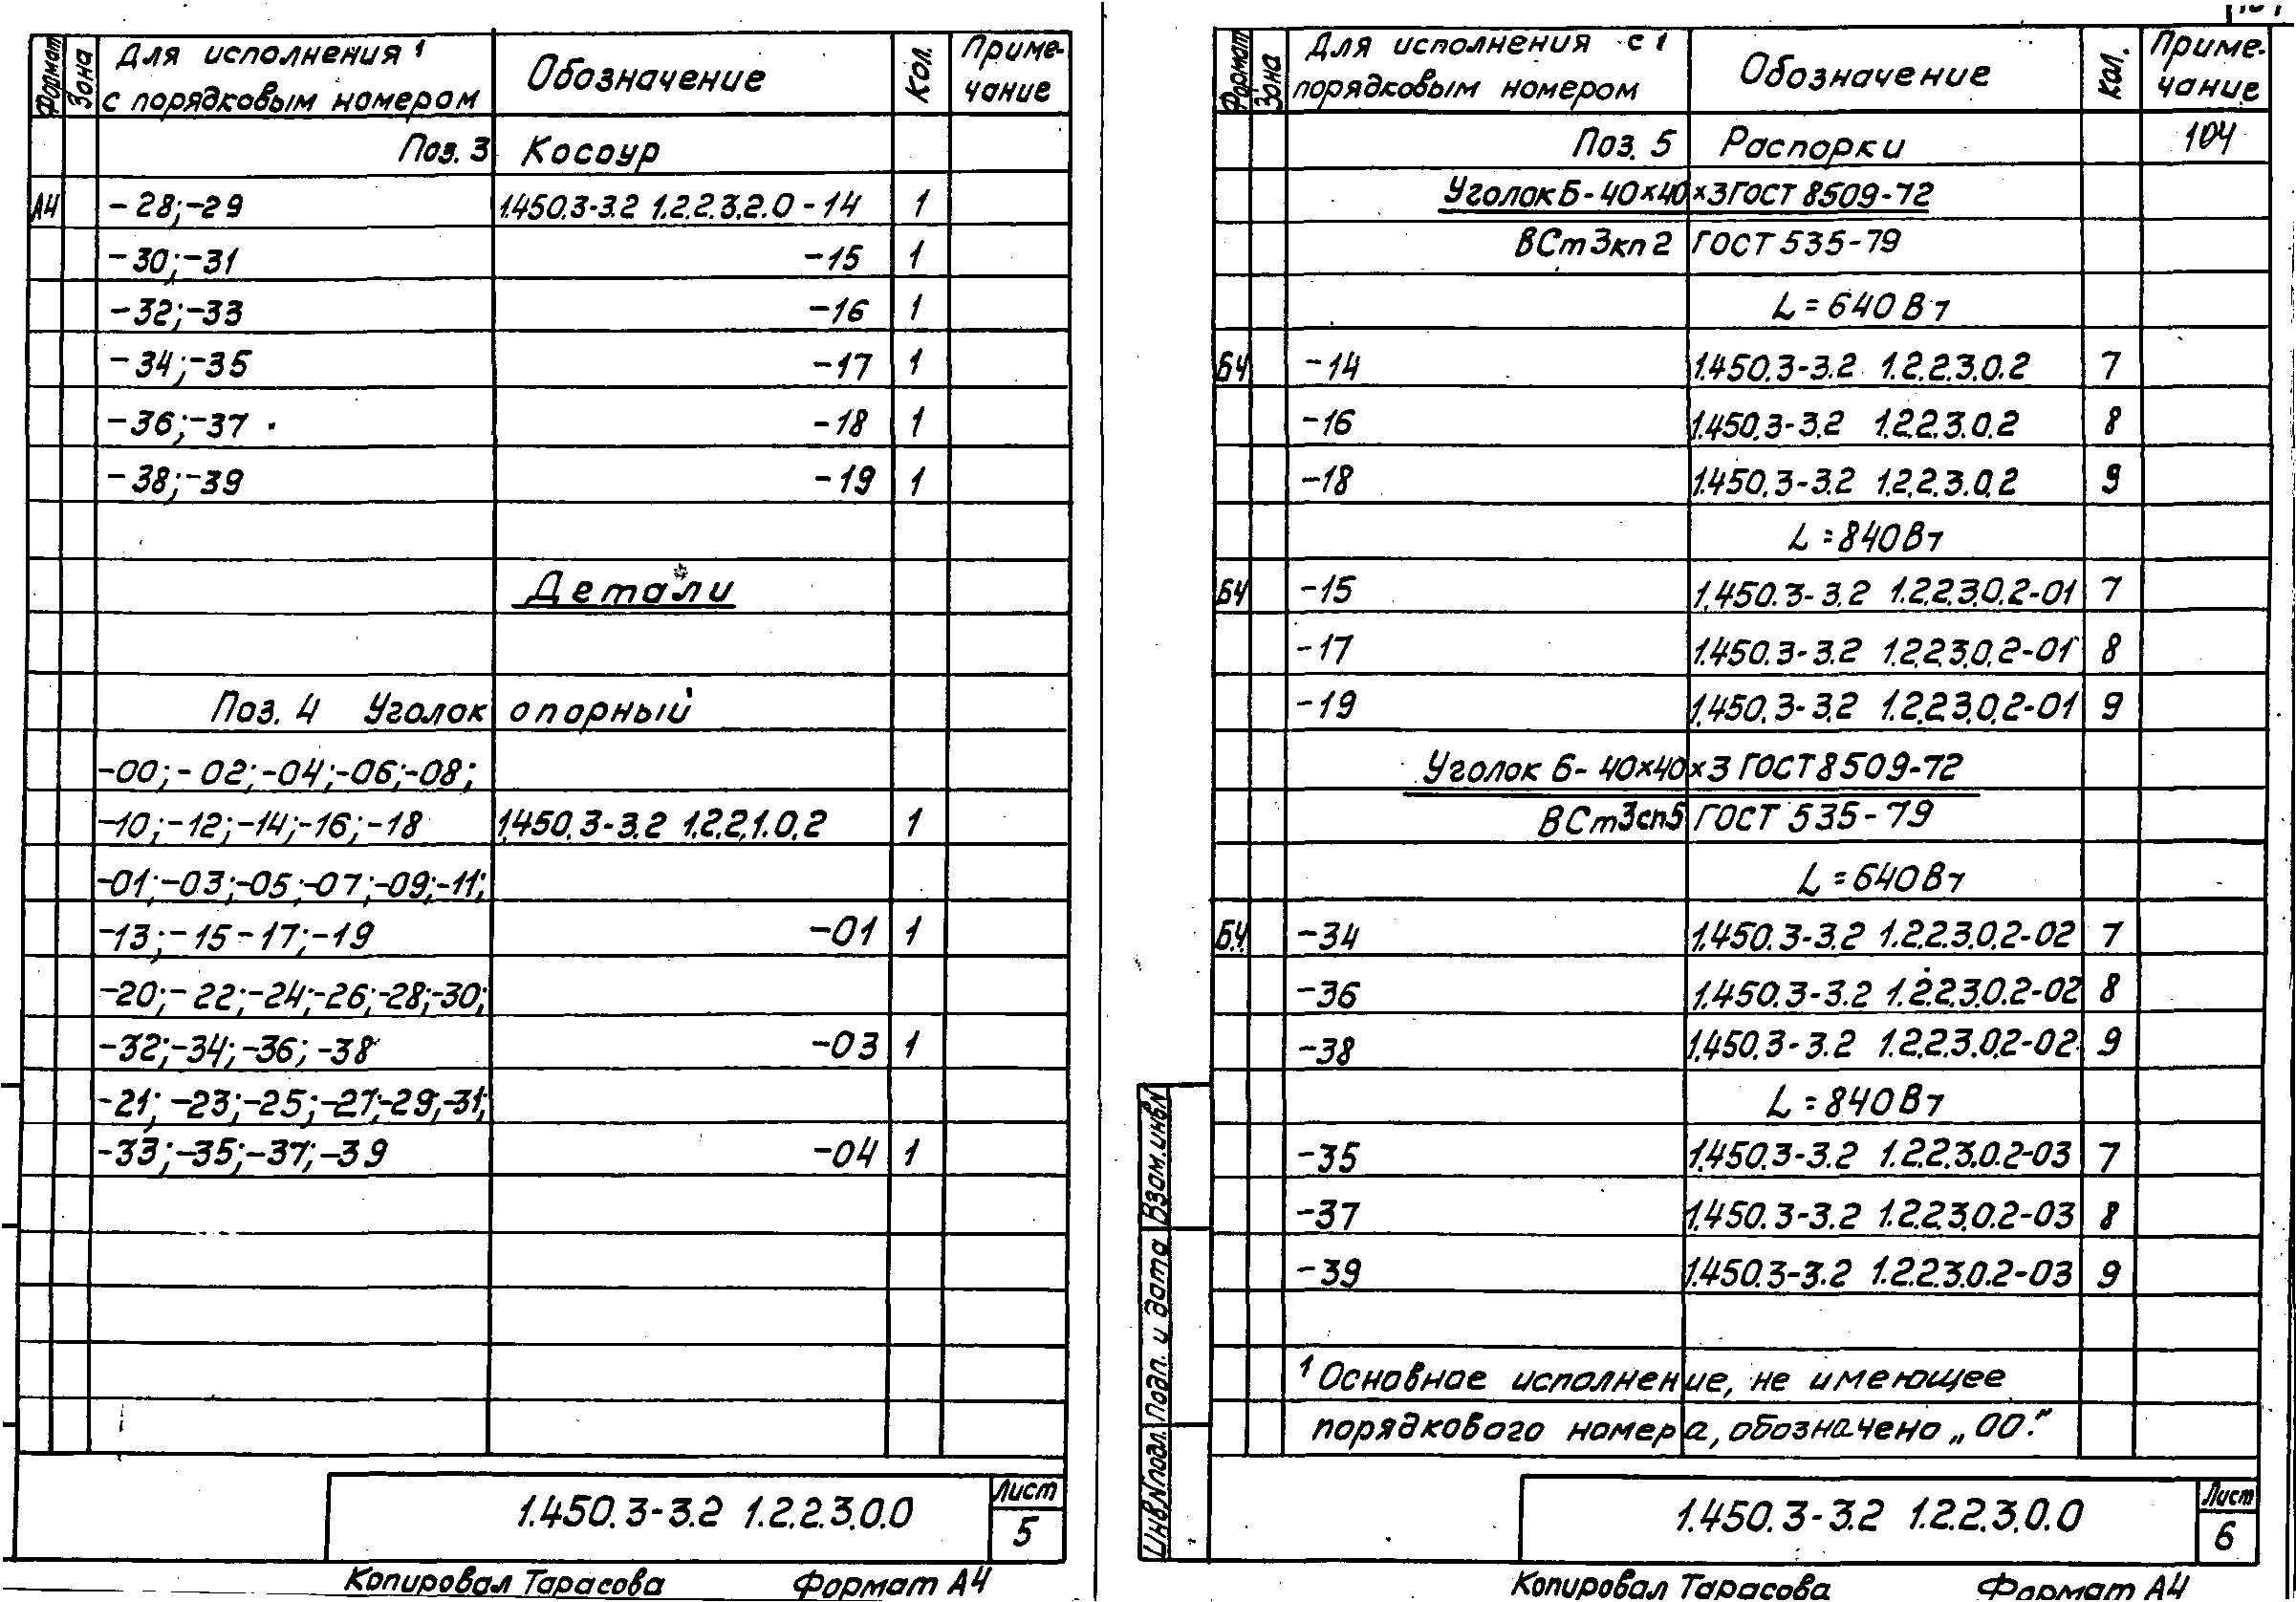 Формат
Зона
Для исполнения ¹
с порядковым номером
Обозначение
Кол.
Приме-
чание
Поз. 3 Косоур
А4 -28;-29 1.450.3-3.2 1.2.2.3.2.0-14 1
-30;-31 -15 1
-32;-33 -16 1
-34;-35 -17 1
-36;-37 -18 1
-38;-39 -19 1
Детали
Поз. 4 Уголок опорный
-00;-02;-04;-06;-08;
-10;-12;-14;-16;-18 1.450.3-3.2 1.2.2.1.0.2 1
-01;-03;-05;-07;-09;-11;
-13;-15-17;-19 -01 1
-20;-22;-24;-26;-28;-30;
-32;-34;-36;-38 -03 1
-21;-23;-25;-27;-29;-31;
-33;-35;-37;-39 -04 1
1.450.3-3.2 1.2.2.3.0.0
Лист
5
Копировал Тарасова Формат А4
Формат
Зона
Для исполнения с ¹
порядковым номером
Обозначение
Кол.
Приме-
чание
Поз. 5 Распорки 104
Уголок Б-40×40×3 ГОСТ 8509-72
ВСт3кп2 ГОСТ 535-79
L=640 Вт
БЧ -14 1.450.3-3.2 1.2.2.3.0.2 7
-16 1.450.3-3.2 1.2.2.3.0.2 8
-18 1.450.3-3.2 1.2.2.3.0.2 9
L=840 Вт
БЧ -15 1.450.3-3.2 1.2.2.3.0.2-01 7
-17 1.450.3-3.2 1.2.2.3.0.2-01 8
-19 1.450.3-3.2 1.2.2.3.0.2-01 9
Уголок Б-40×40×3 ГОСТ 8509-72
ВСт3сп5 ГОСТ 535-79
L=640 Вт
БЧ -34 1.450.3-3.2 1.2.2.3.0.2-02 7
-36 1.450.3-3.2 1.2.2.3.0.2-02 8
-38 1.450.3-3.2 1.2.2.3.0.2-02 9
L=840 Вт
-35 1.450.3-3.2 1.2.2.3.0.2-03 7
-37 1.450.3-3.2 1.2.2.3.0.2-03 8
-39 1.450.3-3.2 1.2.2.3.0.2-03 9
¹ Основное исполнение, не имеющее
порядкового номера, обозначено „00."
Взам.инв.N
Подп. и дата
Инв.N подл.
1.450.3-3.2 1.2.2.3.0.0
Лист
6
Копировал Тарасова Формат А4